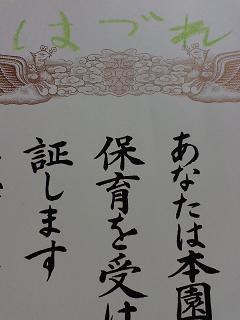 はづれ
あなたは本園
保育を受け
証します